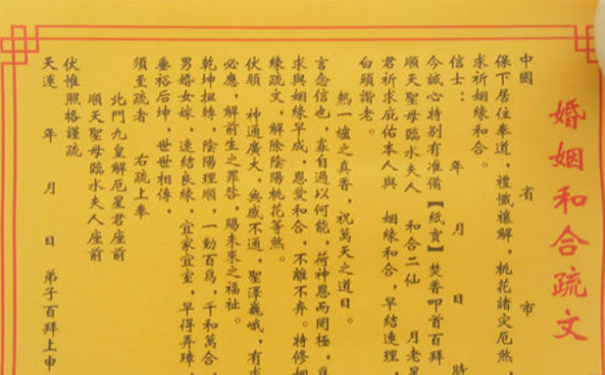 婚姻和合疏文
中國 省 市
保下居住奉道，禮懺禳解，桃花諸災厄煞，
求祈姻緣和合。
信士： 年 月 日 時
今誠心特別有准備【紙寶】焚香叩首百拜
順天聖母臨水夫人 和合二仙 月老星
君祈求庇佑本人與 姻緣和合，早結連理，
白頭諧老。
熱一爐之真香，祝萬天之道日。
言念信也，寡自過以何能，荷神恩而罔極，
求與姻緣早成，恩愛和合，不離不弃。特修姻
緣疏文，解除陰陽桃花等煞。
伏願 神通廣大，無感不通，聖澤巍峨，有求
必應，解前生之罪咎 賜未來之福祉。
乾坤扭轉，陰陽理順，一動百爲，千和萬合，
男婚女嫁，速結良緣，宜家宜室，早得弄璋，
垂裕后坤，世世相傳，
須至疏者 右疏上奉
北門九皇解厄星君座前
順天聖母臨水夫人座前
伏惟照格謹疏
天運 年 月 日 弟子百拜上申